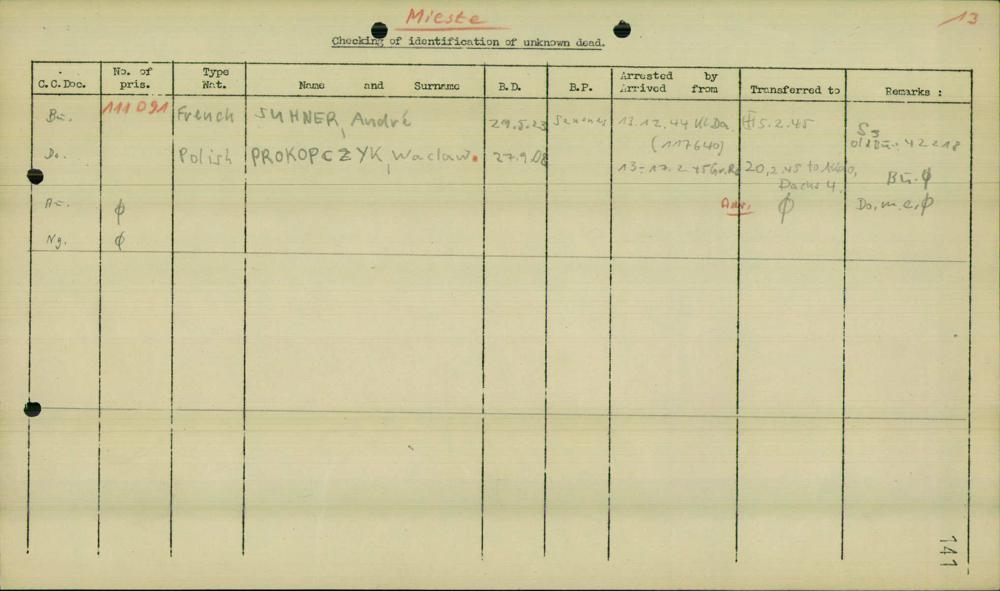 Mieste
13
Checking of identification of unknown dead.
C.C.Doc. No. of pris. Type Nat. Name and Surname B.D. B.P. Arrested by Arrived from Transferred to Remarks :
Bu. 111091 French SUHNER, André 29.5.23 13.12.44 Kl Da. (117640) 15.2.45
Do. Polish PROKOPCZYK, Waclaw. 27.9.08
13-17.2.45 Gr.Ro 20.2.45 to
Bu. ø
Au. ø ø Do. m.c. ø
Ng. ø
141